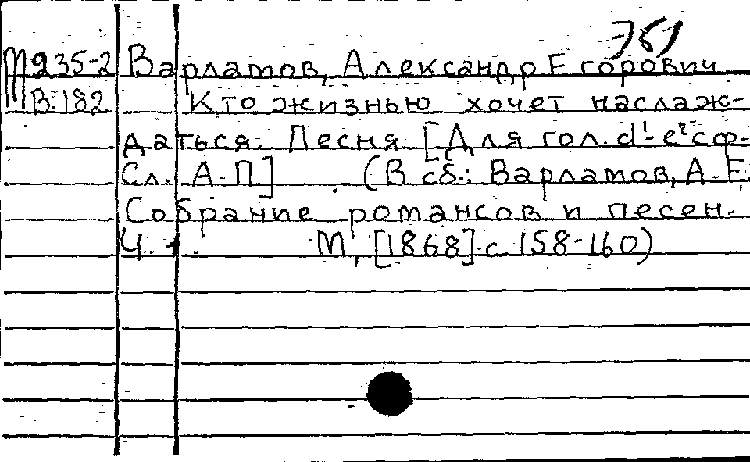 761
М 235-2 Варламов, Александр Егорович
В.182 Кто жизнью хочет наслаж-
даться. Песня [Для гол. d¹-e² с ф-
Сл. А-П] (В сб.: Варламов, А.Е.
Собрание романсов и песен.
Ч. М, [1868] с. 158-160)